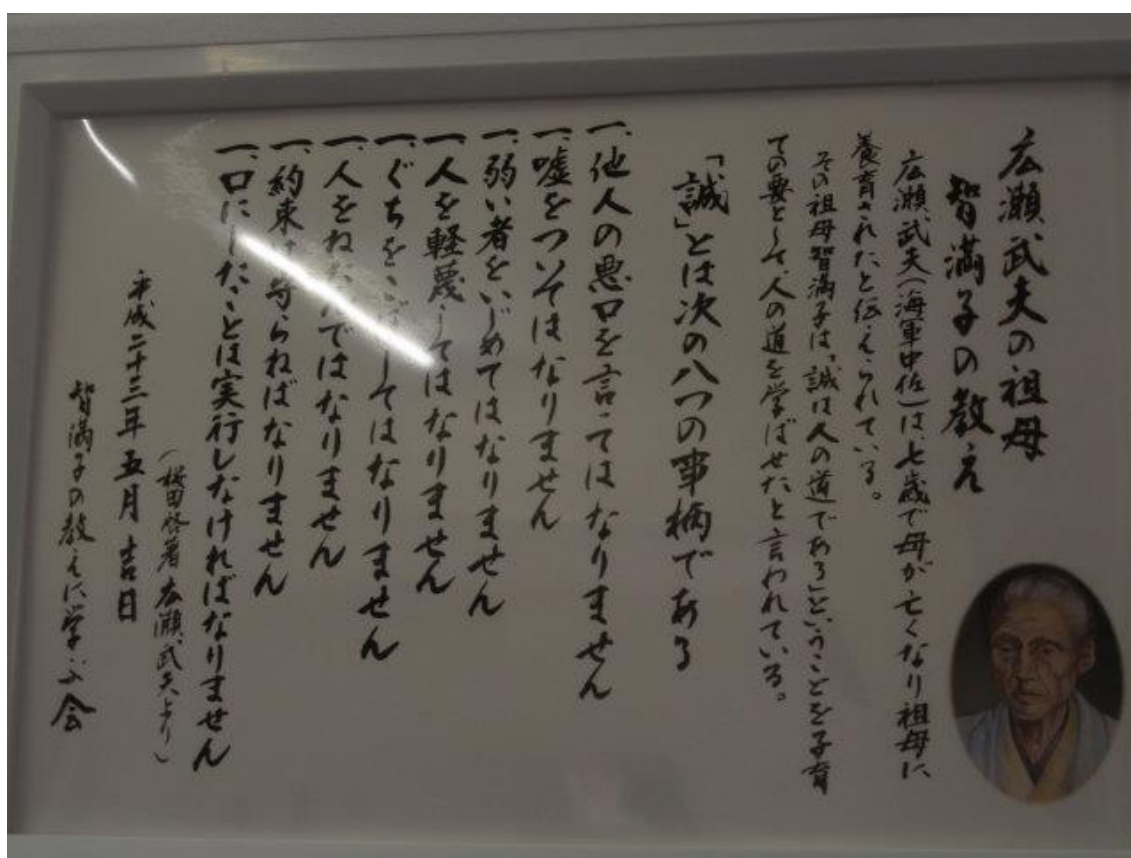 広瀬武夫の祖母
智満子の教え
広瀬武夫(海軍中佐)は、七歳で母が亡くなり祖母に
養育されたと伝えられている。
その祖母智満子は、「誠は人の道である」ということを子育
ての要として、人の道を学ばせたと言われている。
「誠」とは次の八つの事柄である
一、他人の悪口を言ってはなりません
一、嘘をついてはなりません
一、弱い者をいじめてはなりません
一、人を軽蔑してはなりません
一、ぐちをこぼしてはなりません
一、人をねたんではなりません
一、約束は守らねばなりません
一、口にしたことは実行しなければなりません
(桜田啓著 広瀬武夫より)
平成二十三年五月吉日
智満子の教えに学ぶ会